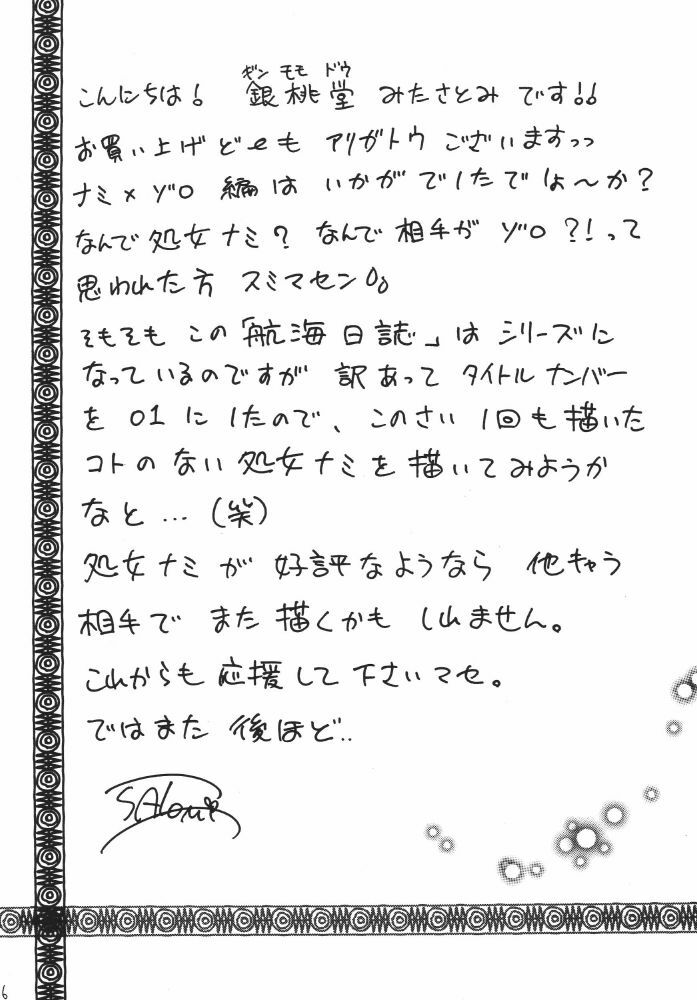 ギン モモ ドウ
こんにちは! 銀桃堂 みたさとみ です!!
お買い上げど〜も アリガトウ ございますっっ
ナミ×ゾロ 編は いかが でしたでしょ〜か?
なんで 処女ナミ? なんで 相手が ゾロ ?!って
思われた方 スミマセン
そもそも この「航海日誌」は シリーズに
なっているのですが 訳あって タイトルナンバー
を 01 に したので、このさい 1回も描いた
コトの ない 処女ナミを 描いてみようか
なと … (笑)
処女ナミ が 好評なようなら 他キャラ
相手で また 描くかも しれません。
これからも 応援して 下さいマセ。
ではまた 後ほど..
SAtomi
6